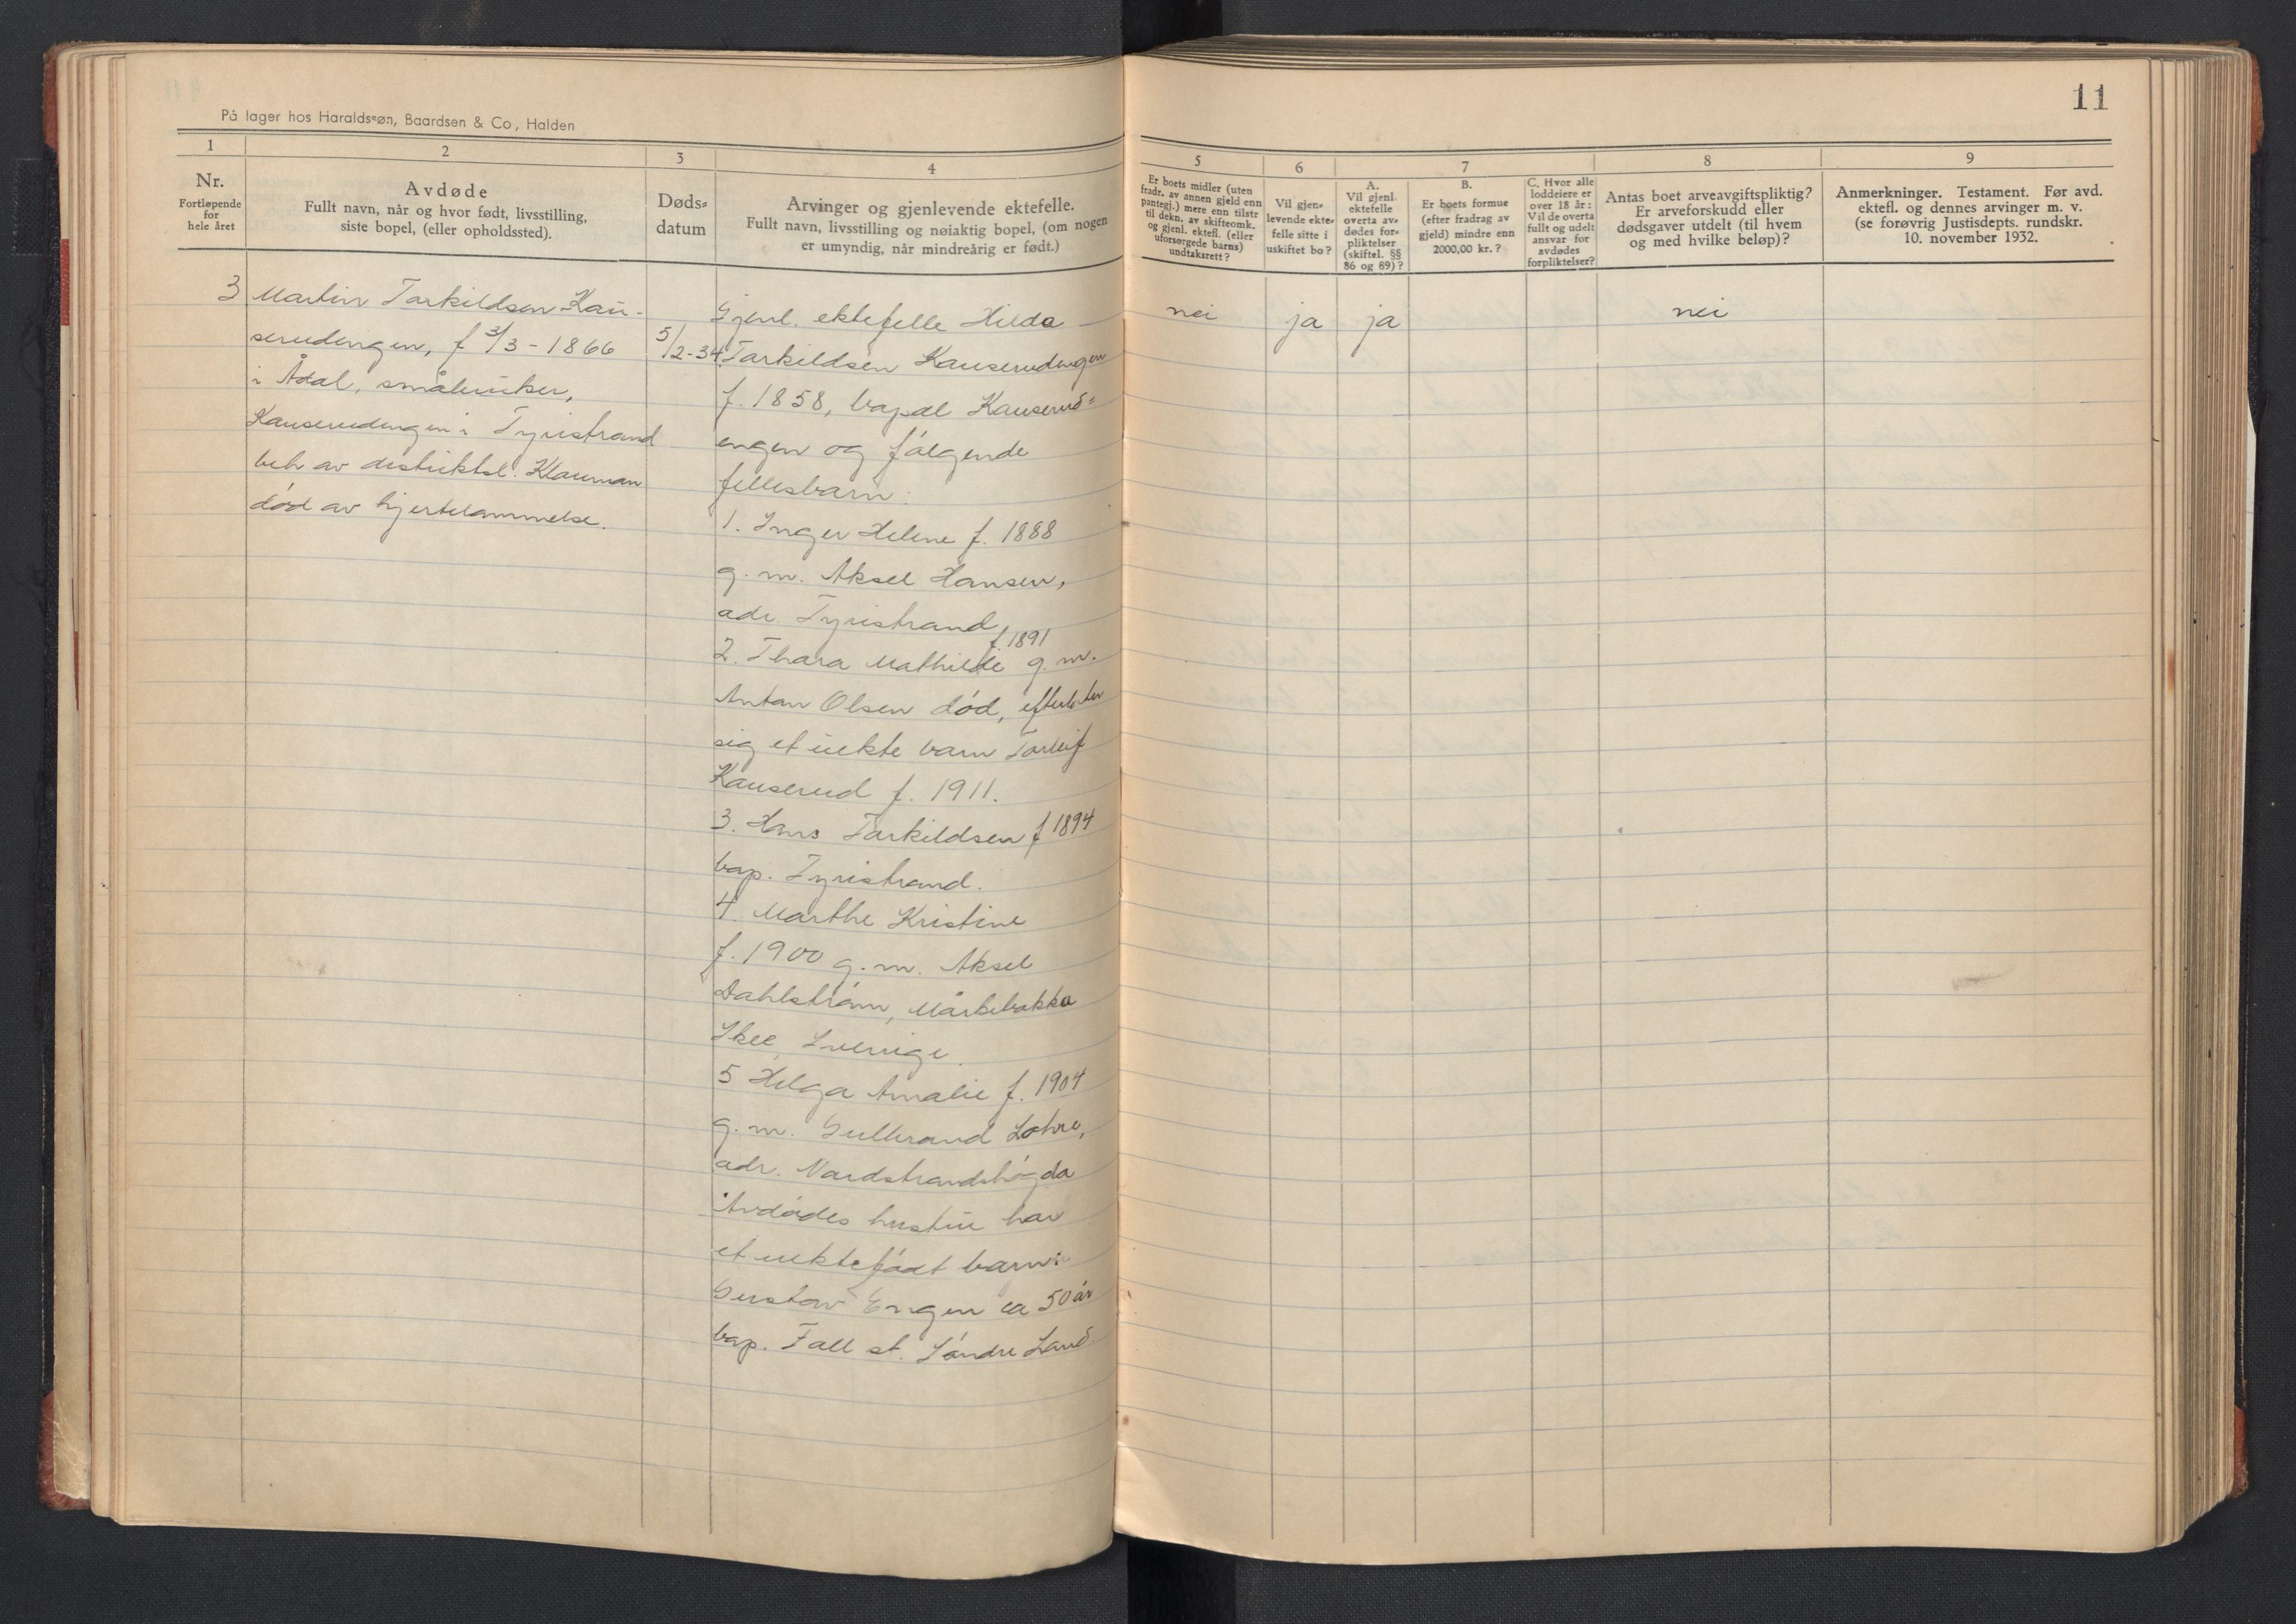 11
På lager hos Haraldssøn, Baardsen & Co, Halden
1
2
3
4
5
6
7
8
9
Nr.
Fortløpende
for
hele året
Avdøde
Fullt navn, når og hvor født, livsstilling,
siste bopel, (eller opholdssted).
Døds-
datum
Arvinger og gjenlevende ektefelle.
Fullt navn, livsstilling og nøiaktig bopel, (om nogen
er umyndig, når mindreårig er født.)
Er boets midler (uten
fradr. av annen gjeld enn
pantegj.) mere enn tilstr
til dekn. av skifteomk.
og gjenl. ektefl. (eller
uforsørgede barns)
undtaksrett?
Vil gjen-
levende ekte-
felle sitte i
uskiftet bo?
A.
Vil gjenl.
ektefelle
overta av-
dødes for-
pliktelser
(skiftel. §§
86 og 89)?
B.
Er boets formue
(efter fradrag av
gjeld) mindre enn
2000,00 kr.?
C. Hvor alle
loddeiere er
over 18 år:
Vil de overta
fullt og udelt
ansvar for
avdødes
forpliktelser?
Antas boet arveavgiftspliktig?
Er arveforskudd eller
dødsgaver utdelt (til hvem
og med hvilke beløp)?
Anmerkninger. Testament. Før avd.
ektefl. og dennes arvinger m. v.
(se forøvrig Justisdepts. rundskr.
10. november 1932.
3
Martin Torkildsen Kau-
serudengen, f 3/3-1866
i Ådal, småbruker,
Kauserudengen i Tyristrand
beh av distriktsl. Klouman
død av hjertelammelse.
5/2-34
Gjenl. ektefelle Hilda
Torkildsen Kauserudengen
f. 1858, bopel Kauserud=
engen og følgende
fellesbarn:
1. Inger Helene f. 1888
g. m. Aksel Hansen,
adr. Tyristrand
f. 1891
2. Thora Mathilde g. m.
Anton Olsen død, efterlater
sig et uekte barn Torleif
Kauserud f. 1911.
3. Hans Torkildsen f 1894
bop. Tyristrand.
4. Marthe Kristine
f. 1900 g. m. Aksel
Dahlstrøm, Mörkebakka
Skee, Sverrige.
5 Helga Amalie f. 1904
g. m. Gulbrand Lohre,
adr. Nordstrandshøgda
Avdødes hustru har
et uektefødt barn:
Gustav Engen ca 50 år
bop. Fall st. Søndre Land
nei
ja
ja
nei